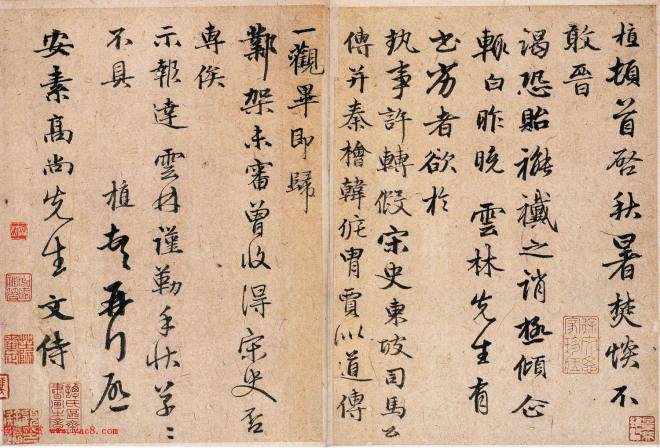 植頓首啓秋暑焚惔不
敢晉
謁恐貽褦襶之誚極傾企
輒白昨晚雲林先生有
書労者欲於
執事許轉假宋史東坡司馬公
傳并秦檜韓侂冑賈似道傳
一觀畢即歸
鄴架未審曾收得宋史否
專俟
示報達雲林謹勒手狀草〻
不具 植頓首再行啓
安素高尚先生文侍
www.yac8.com